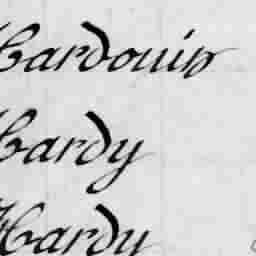 Hardouin
Hardy
Hardy